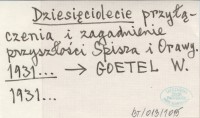 Dziesięciolecie przyłą-
czenia i zagadnienie
przyszłości Spisza i Orawy.
1931... → GOETEL W.
1931...